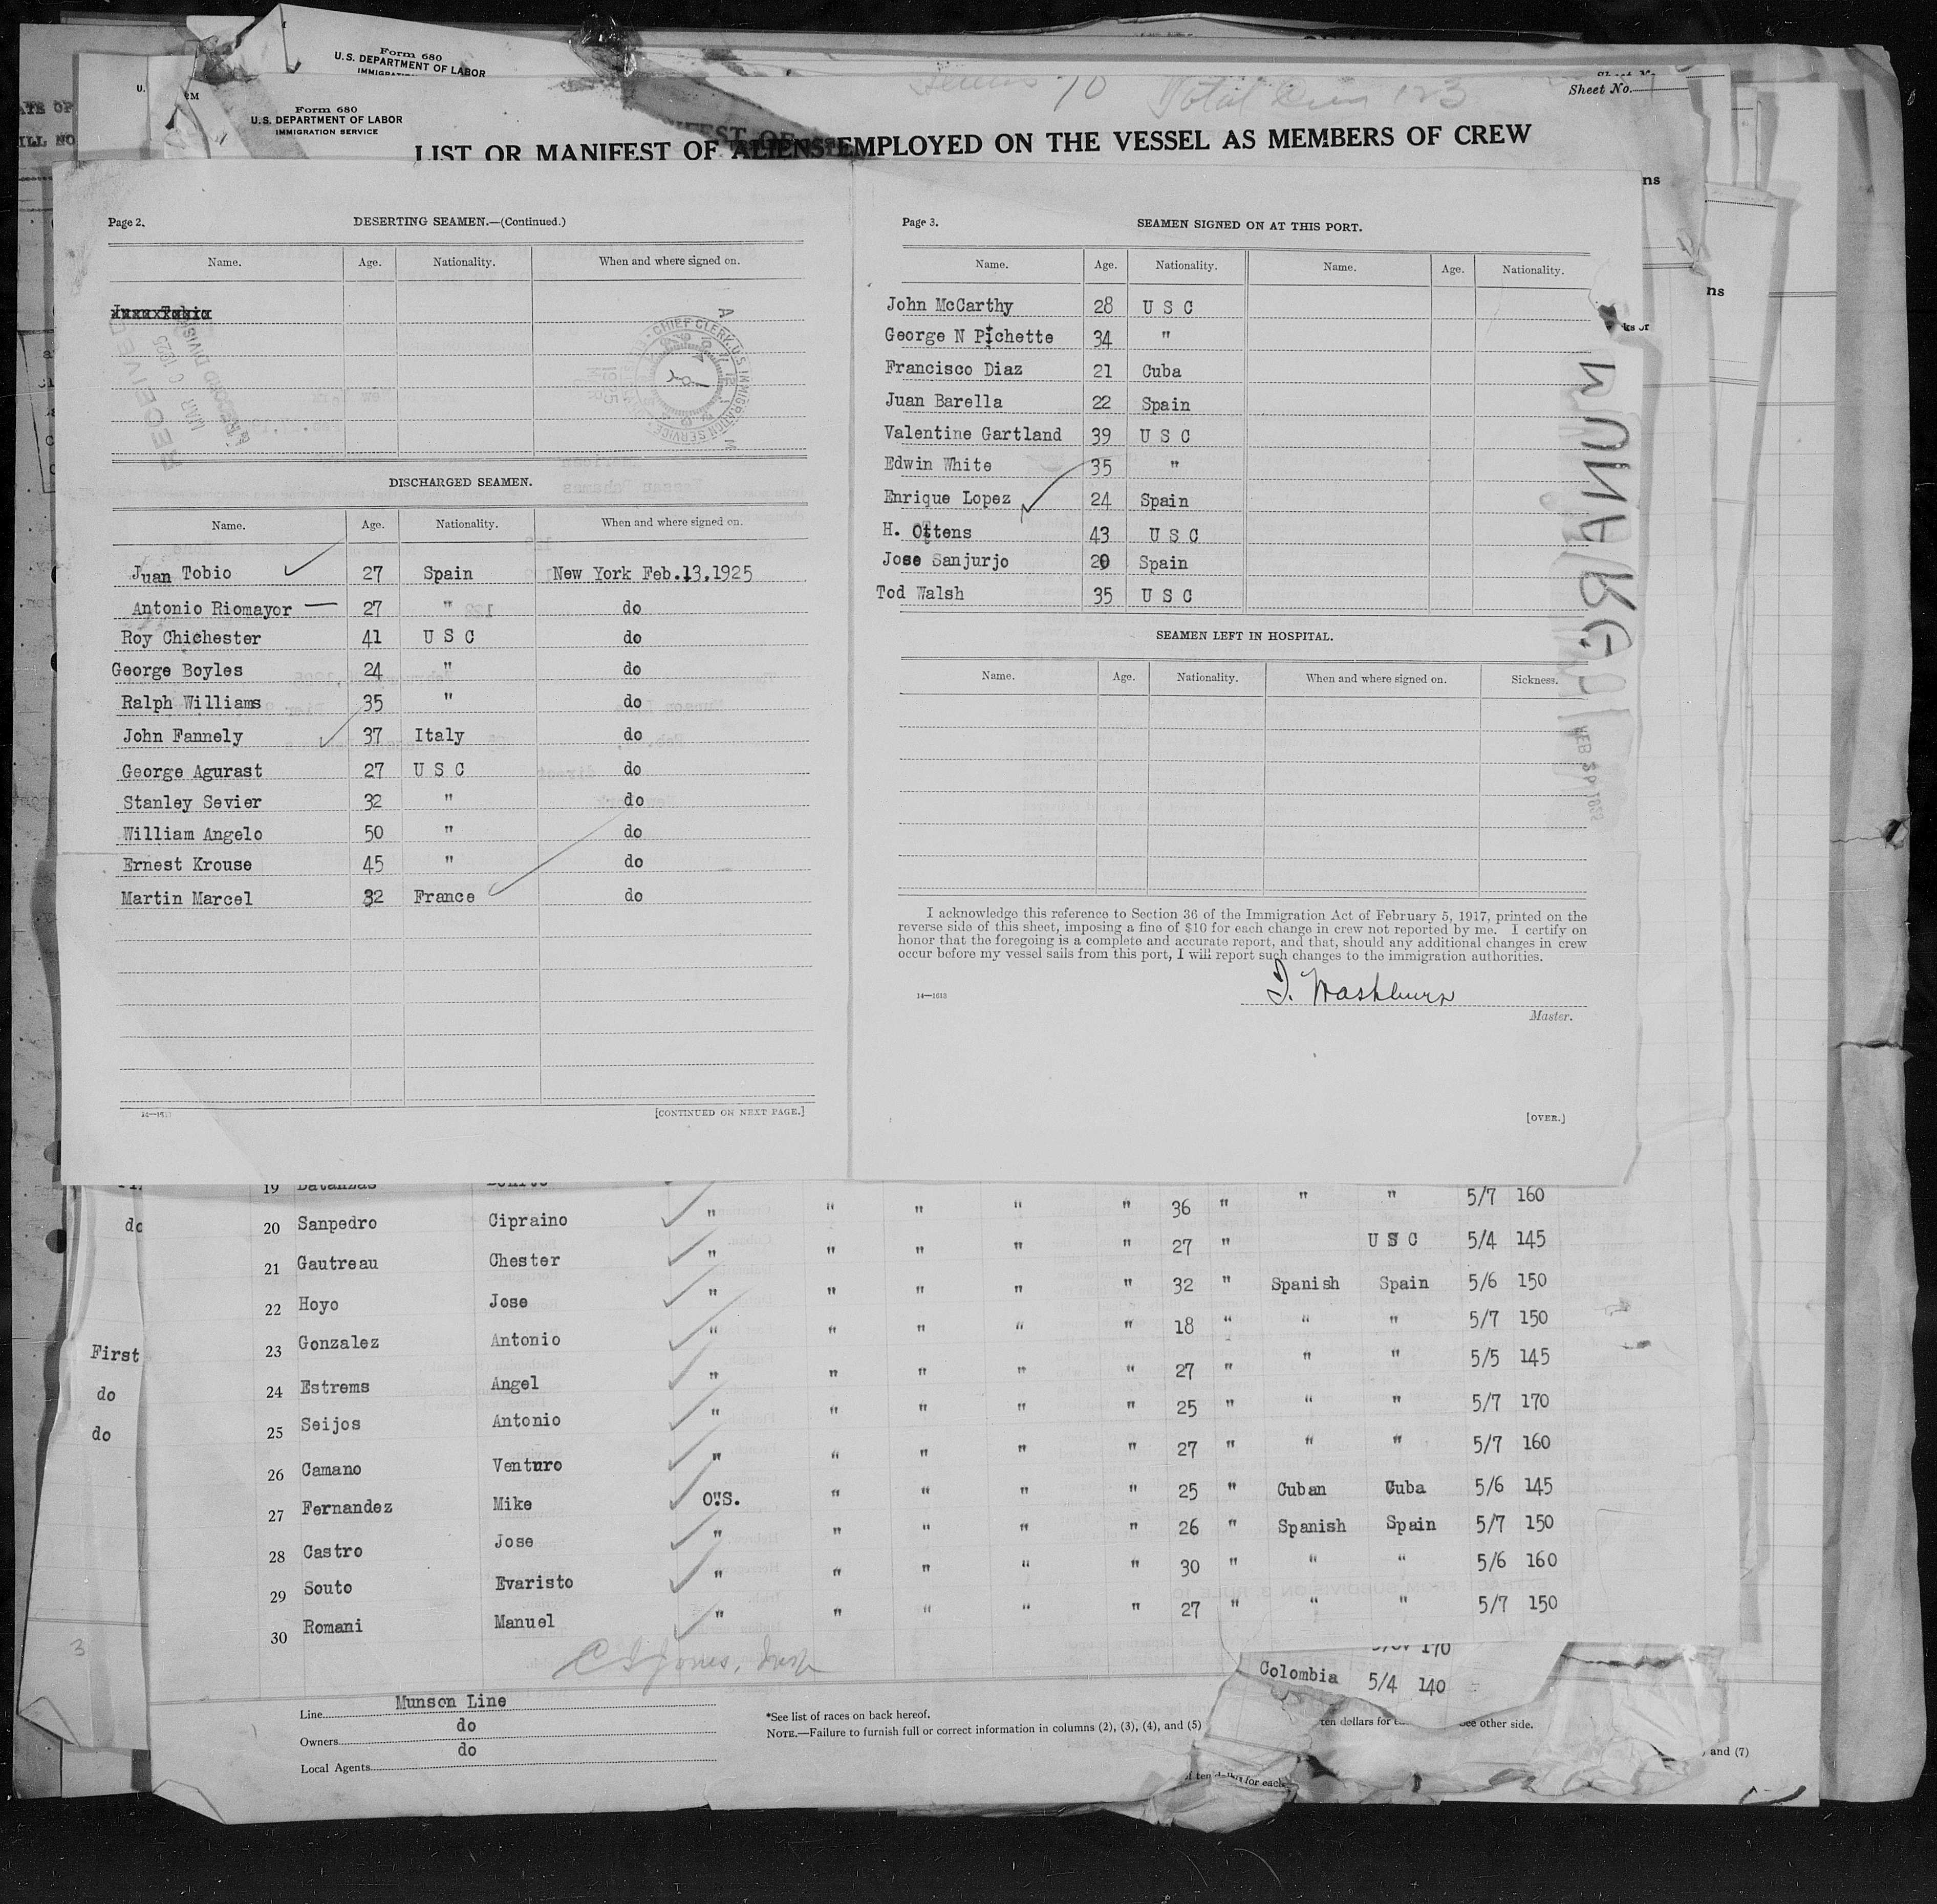 Form 680
U.S. DEPARTMENT OF LABOR
Form 680
U.S. DEPARTMENT OF LABOR
IMMIGRATION SERVICE
Total 123
Sheet No.
LIST OR MANIFEST OF ALIENS EMPLOYED ON THE VESSEL AS MEMBERS OF CREW
Page 2.
DESERTING SEAMEN.—(Continued.)
Name. Age. Nationality. When and where signed on.
RECEIVED
DISCHARGED SEAMEN.
Name. Age. Nationality. When and where signed on.
Juan Tobio 27 Spain New York Feb.13,1925
Antonio Riomayor 27 " do
Roy Chichester 41 U S C do
George Boyles 24 " do
Ralph Williams 35 " do
John Fannely 37 Italy do
George Agurast 27 U S C do
Stanley Sevier 32 " do
William Angelo 50 " do
Ernest Krouse 45 " do
Martin Marcel 32 France do
[CONTINUED ON NEXT PAGE.]
Page 3.
SEAMEN SIGNED ON AT THIS PORT.
Name. Age. Nationality. Name. Age. Nationality.
John McCarthy 28 U S C
George N Pichette 34 "
Francisco Diaz 21 Cuba
Juan Barella 22 Spain
Valentine Gartland 39 U S C
Edwin White 35 "
Enrique Lopez 24 Spain
H. Ottens 43 U S C
Jose Sanjurjo 20 Spain
Tod Walsh 35 U S C
SEAMEN LEFT IN HOSPITAL.
Name. Age. Nationality. When and where signed on. Sickness.
I acknowledge this reference to Section 36 of the Immigration Act of February 5, 1917, printed on the
reverse side of this sheet, imposing a fine of $10 for each change in crew not reported by me. I certify on
honor that the foregoing is a complete and accurate report, and that, should any additional changes in crew
occur before my vessel sails from this port, I will report such changes to the immigration authorities.
14—1613
D. Washburn
Master.
[OVER.]
MUNARGO
19 " " 5/7 160
20 Sanpedro Cipraino " " " " " 36 " U S C 5/4 145
21 Gautreau Chester " " " " " 27 " Spanish Spain 5/6 150
22 Hoyo Jose " " " " " 32 " " " 5/7 150
23 Gonzalez Antonio " " " " " 18 " " " 5/5 145
24 Estrems Angel " " " " " 27 " " " 5/7 170
25 Seijos Antonio " " " " " 25 " " " 5/7 160
26 Camano Venturo " " " " " 27 " Cuban Cuba 5/6 145
27 Fernandez Mike O.S. " " " " 25 " Spanish Spain 5/7 150
28 Castro Jose " " " " " 26 " " " 5/6 160
29 Souto Evaristo " " " " " 30 " " " 5/7 150
30 Romani Manuel " " " " " 27 "
First
do
do
3
170
Colombia 5/4 140
Line Munson Line
Owners do
Local Agents do
*See list of races on back hereof.
NOTE.—Failure to furnish full or correct information in columns (2), (3), (4), and (5)
ten dollars for
see other side.
and (7)
of ten dollars for each